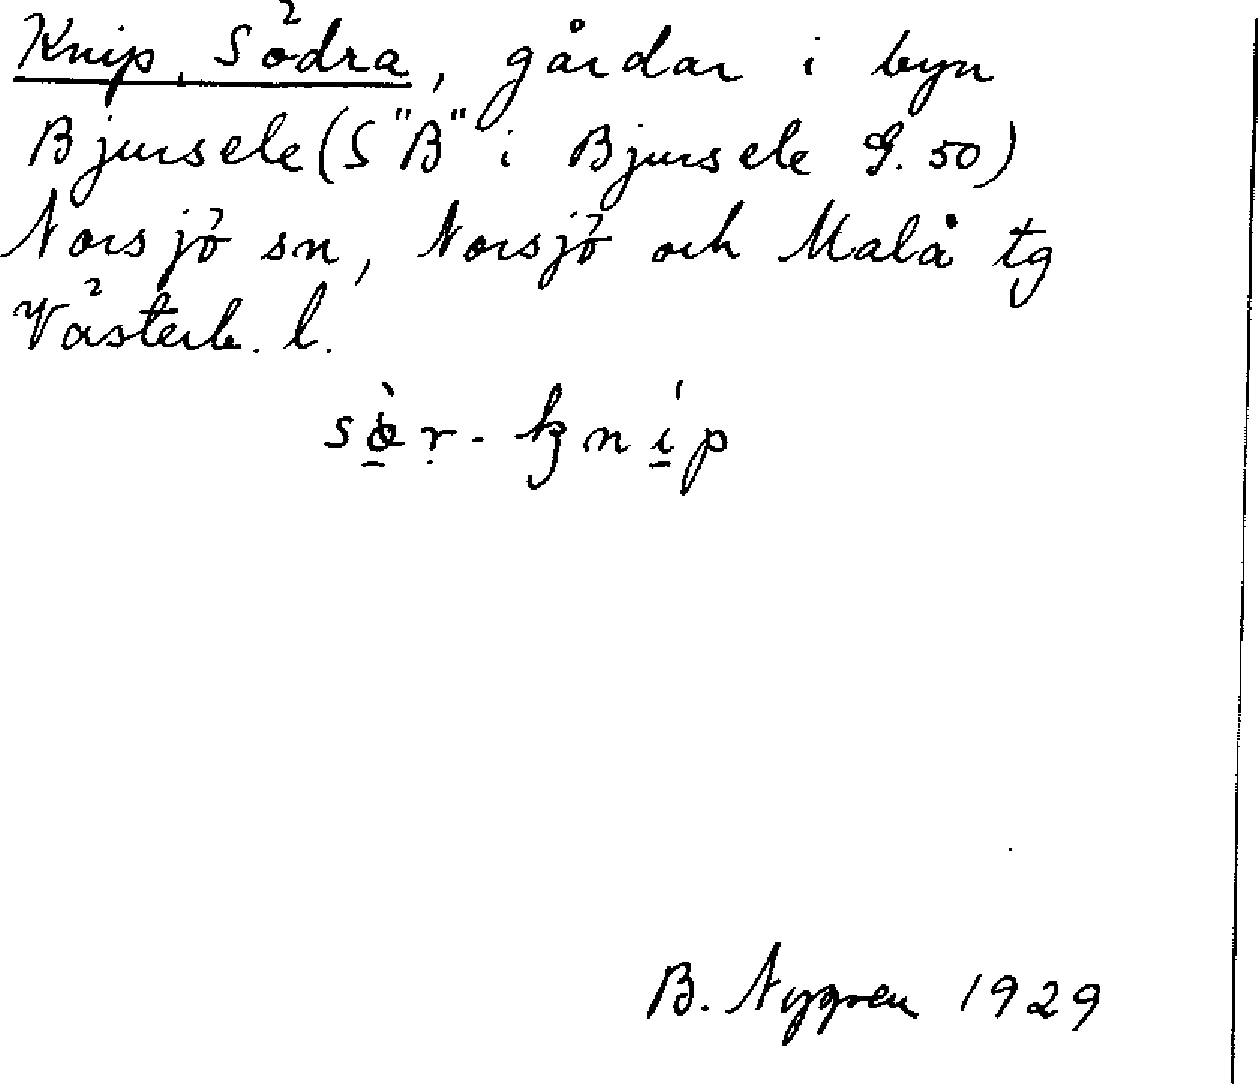 Knip, Södra, gårdar i byn
Bjursele (S "B" i Bjursele G. 50)
Norsjö sn, Norsjö och Malå tg
Västerb. l.
sø̀r-knip
B. Nygren 1929